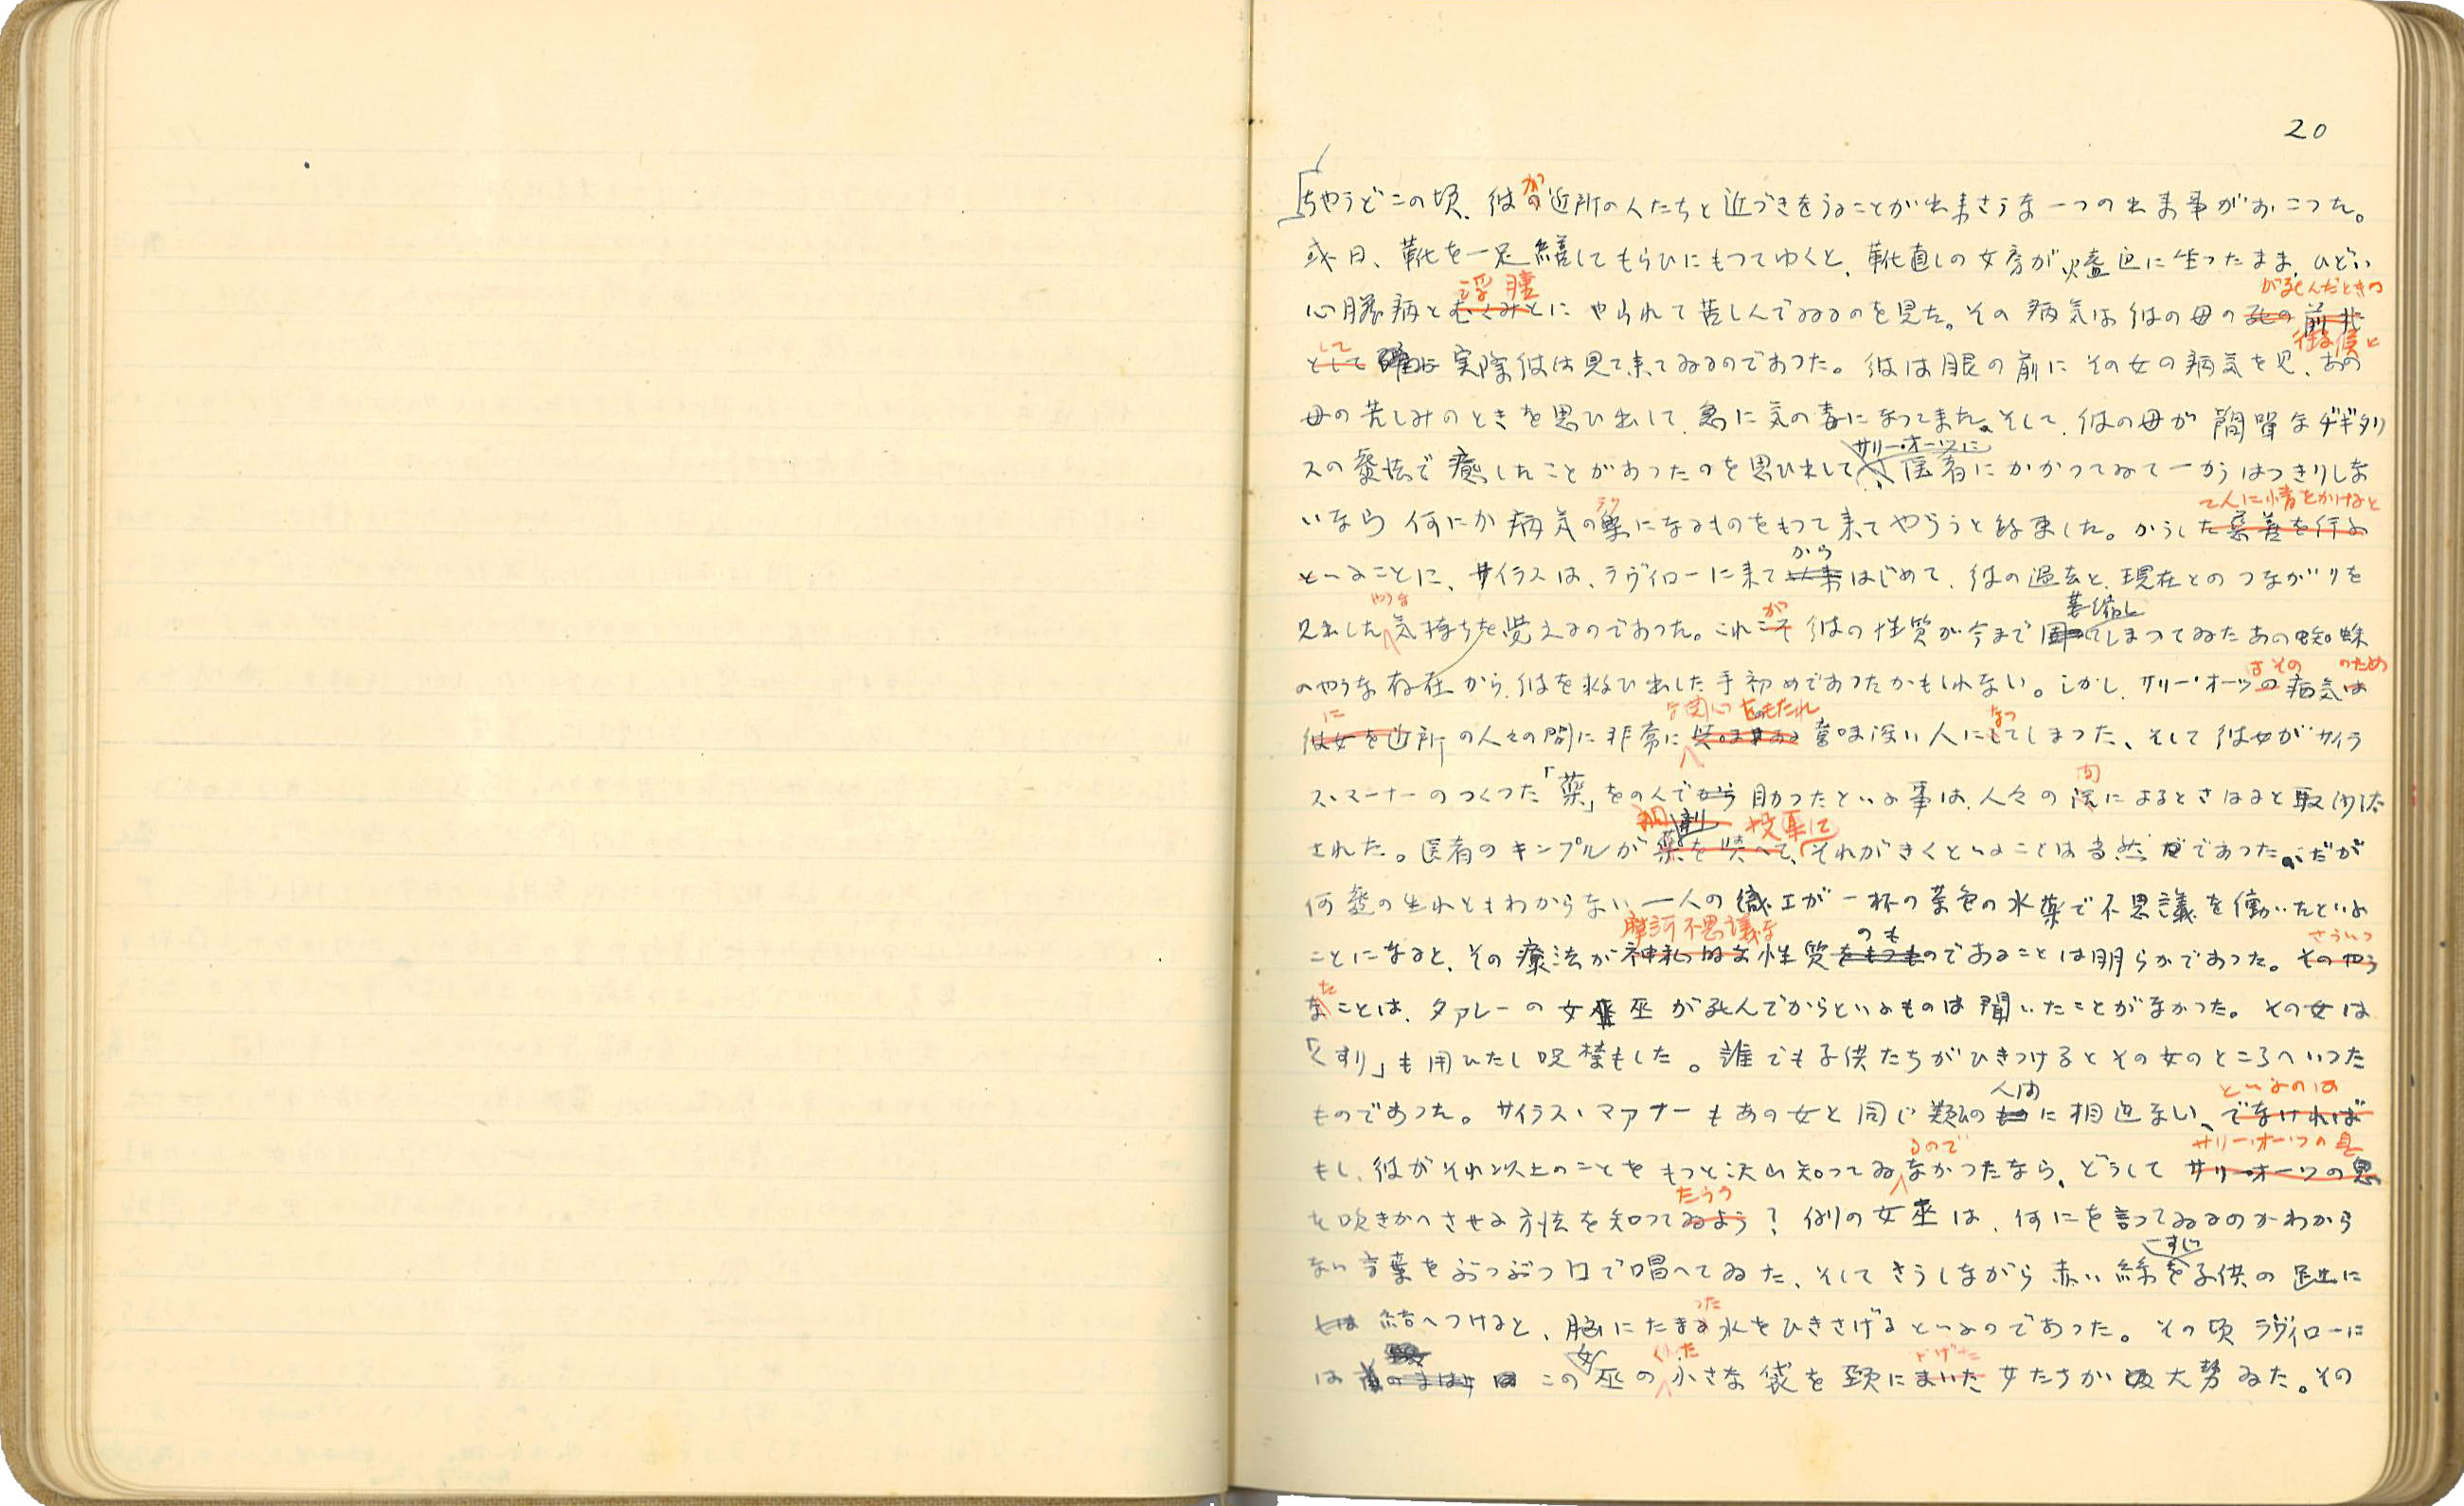 20
ちやうどこの頃、彼が近所の人たちと近づきをうることが出来さうな一つの出来事がおこつた。
或日、靴を一足繕してもらひにもつてゆくと、靴直しの女房が、爐辺に坐つたまま、ひどい
浮腫 が死んだときの
心臓病とむくみとにやられて苦しんでゐるのを見た。その病気は彼の母の死の前兆
して 徴候と
として 実際彼は見て来てゐるのであつた。彼は眼の前にその女の病気を見、あの
母の苦しみのときを思ひ出して、急に気の毒になつてきた。そして、彼の母が簡単なヂギタリ
サリー・オーツに
スの療法で癒したことがあつたのを思ひ出して、医者にかかつてゐて一かうはつきりしな
て人に情をかけると
いなら何にか病気の薬になるものをもつて来てやらうと約束した。かうした慈善を行ふ
から
といふことに、サイラスは、ラヴィローに来て以来はじめて、彼の過去と、現在とのつながりを
やうな が 萎縮し
見出した気持ちを覚えるのであつた。これこそ彼の性質が今まで固つてしまつてゐたあの蜘蛛
はその のため
のやうな存在から、彼を救ひ出した手初めであつたかもしれない。しかし、サリー・オーツの病気は
に な関心をもたれ なつ
彼女を近所の人々の間に非常に興味ある意味深い人にしてしまつた、そして彼女がサイラ
ス・マーナーのつくつた「薬」をのんでから助つたといふ事は、人々の話によるとさはると取沙汰
調剤 投薬して
された。医者のキンプルが薬を与へて、それがきくといふことは当然であつた。だが
何処の生れともわからない一人の織工が一杯の茶色の水薬で不思議を働いたといふ
摩訶不思議な のも さういつ
ことになると、その療法が神秘的な性質をもつものであることは明らかであつた。そのやう
た
なことは、タァレーの女巫が死んでからといふものは聞いたことがなかつた。その女は
「くすり」も用ひたし呪禁もした。誰でも子供たちがひきつけるとその女のところへいつた
人間 といふのは
ものであつた。サイラス・マアナーもあの女と同じ類のものに相違ない、でなければ
るので サリー・オーツの息
もし、彼がそれ以上のことをもつと沢山知つてゐなかつたなら、どうしてサリーオーツの息
たらう
を吹きかへさせる方法を知つてゐよう？ 例の女巫は、何にを言つてゐるのかわから
一すぢ
ない言葉をぶつぶつ口で唱へてゐた、そしてさうしながら赤い絲を子供の趾に
つた
結へつけると、脳にたまる水をひきさげるといふのであつた。その頃ラヴィローに
女 くれた 下げた
は この巫の小さな袋を頸にまいた女たちが大勢ゐた。その